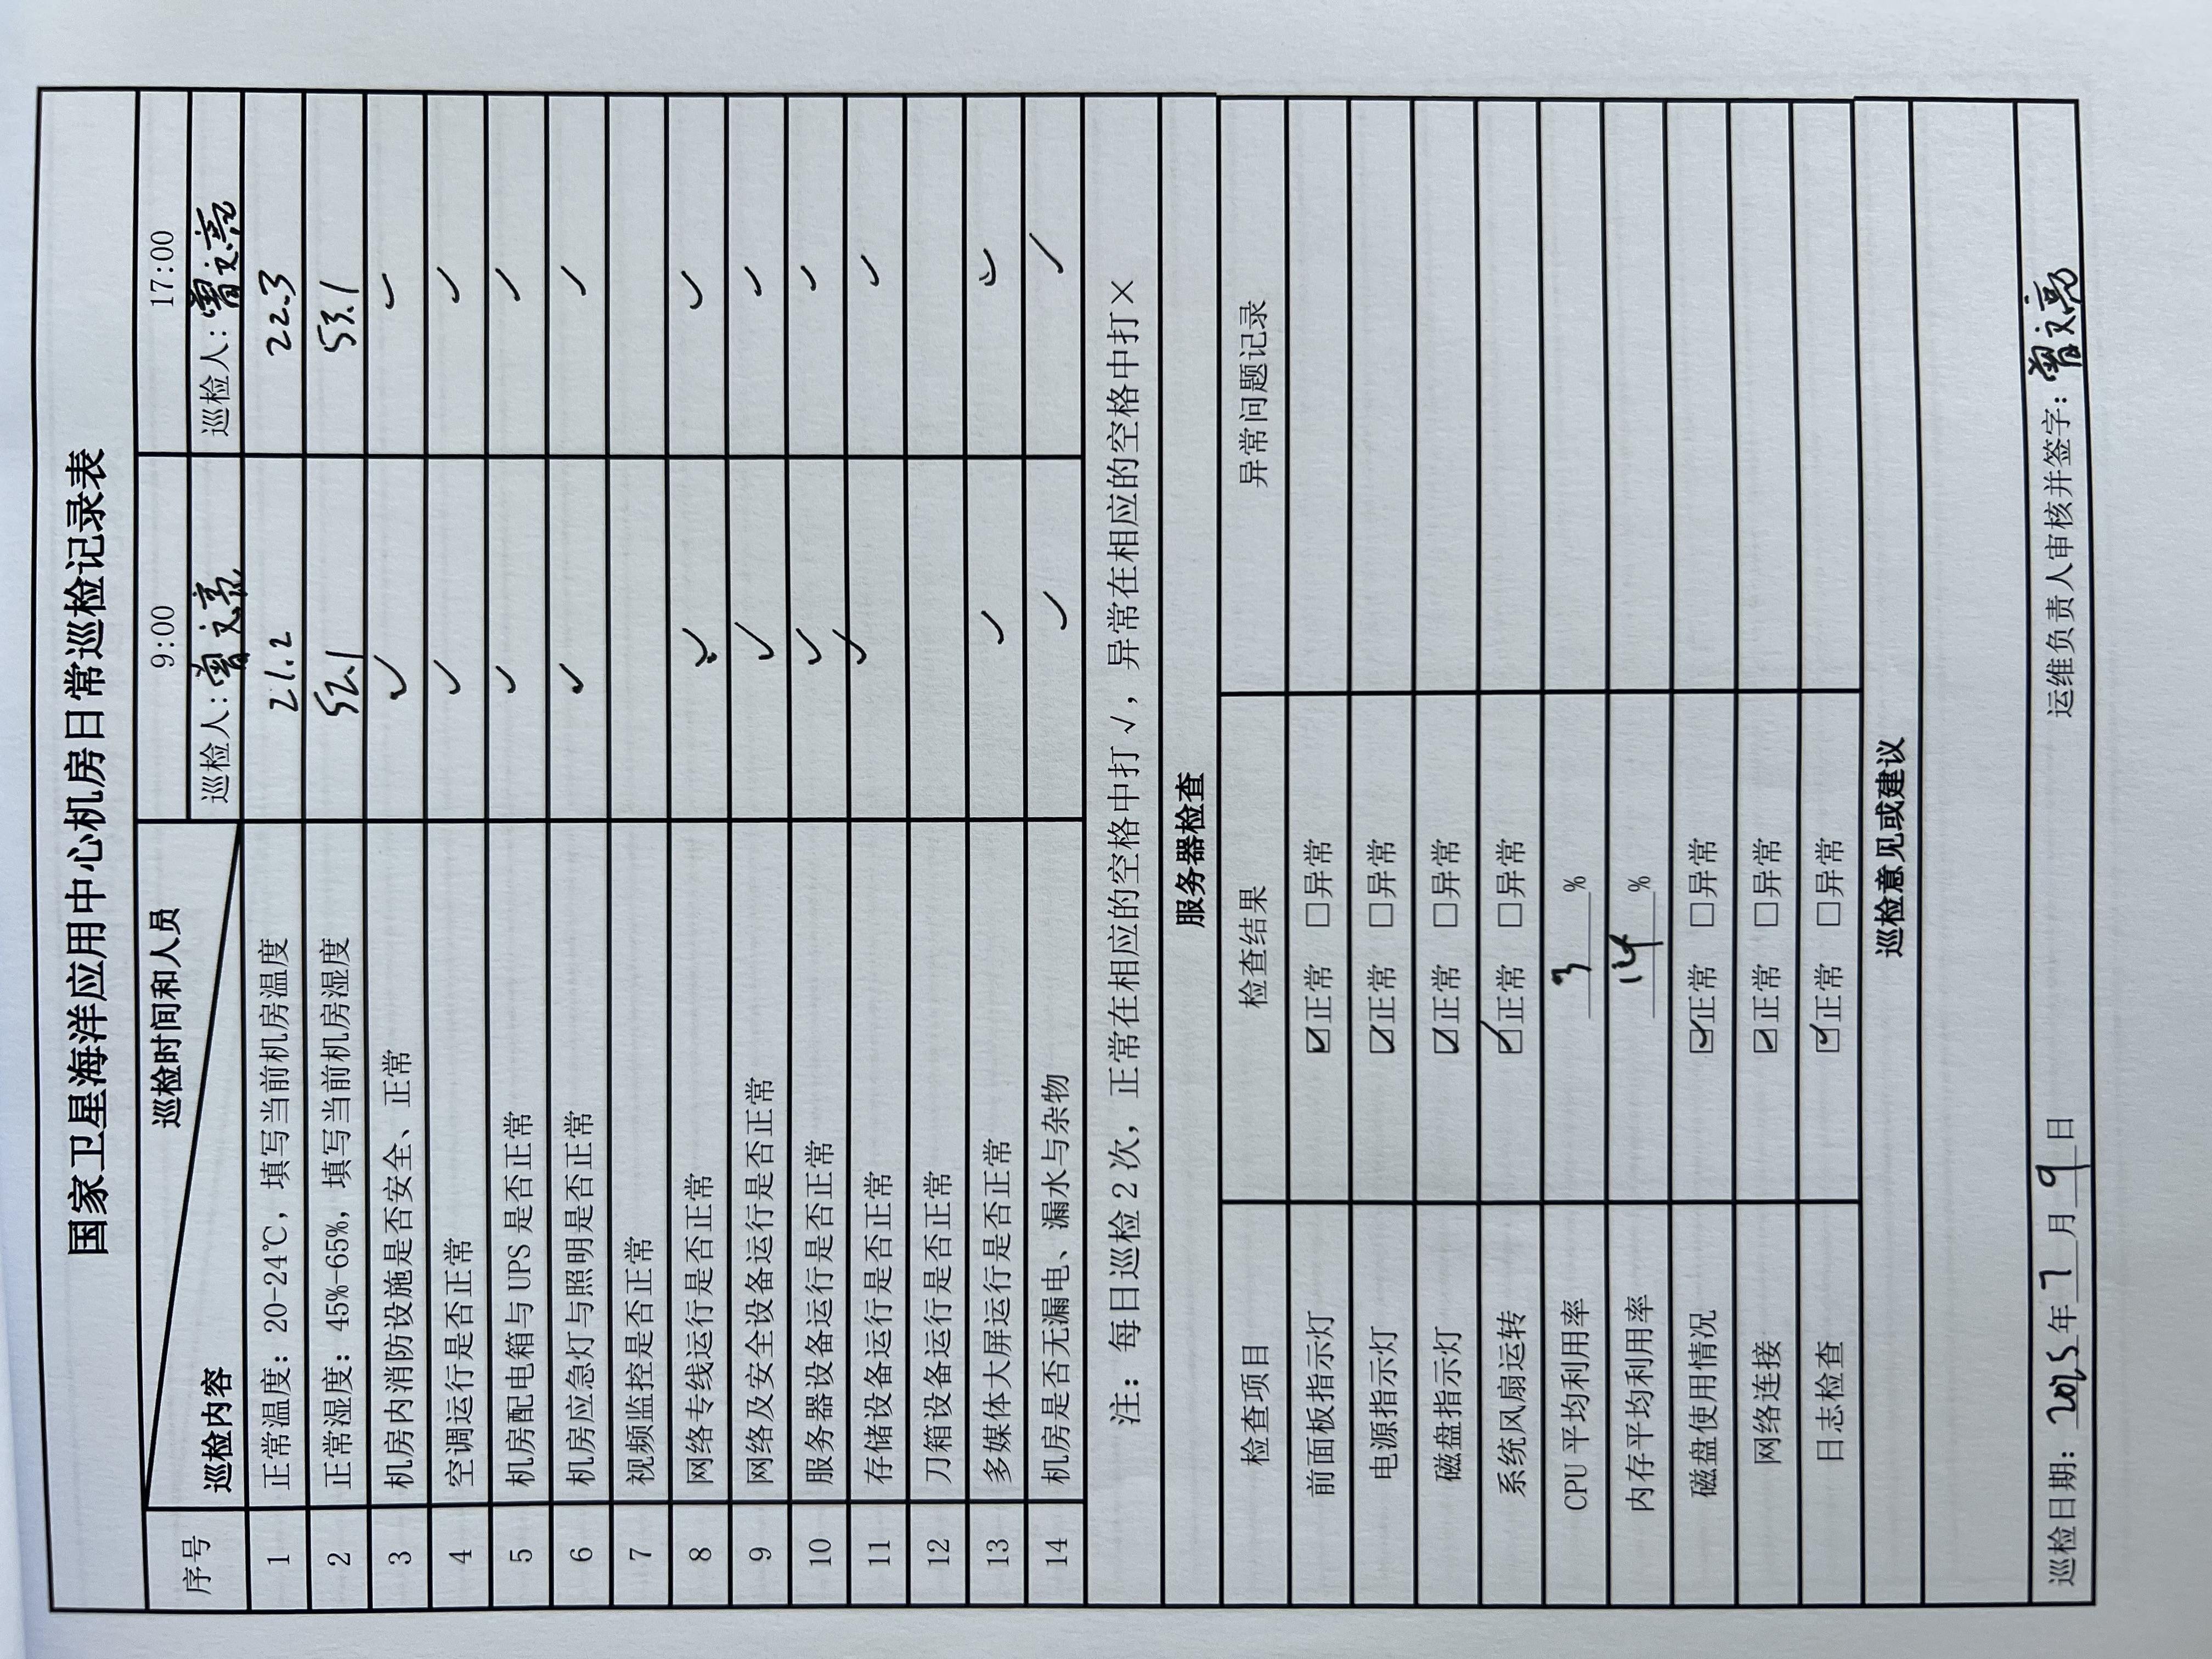 国家卫星海洋应用中心机房日常巡检记录表
序号 巡检时间和人员 巡检内容 9:00 17:00
巡检人：曾文亮 巡检人：曾文亮
1 正常温度：20-24℃，填写当前机房温度 21.2 22.3
2 正常湿度：45%-65%，填写当前机房湿度 52.1 53.1
3 机房内消防设施是否安全、正常 ✓ ✓
4 空调运行是否正常 ✓ ✓
5 机房配电箱与 UPS 是否正常 ✓ ✓
6 机房应急灯与照明是否正常 ✓ ✓
7 视频监控是否正常
8 网络专线运行是否正常 ✓ ✓
9 网络及安全设备运行是否正常 ✓ ✓
10 服务器设备运行是否正常 ✓ ✓
11 存储设备运行是否正常 ✓ ✓
12 刀箱设备运行是否正常
13 多媒体大屏运行是否正常 ✓ ✓
14 机房是否无漏电、漏水与杂物 ✓ ✓
注：每日巡检 2 次，正常在相应的空格中打√，异常在相应的空格中打×
服务器检查
检查项目 检查结果 异常问题记录
前面板指示灯 ☑正常 □异常
电源指示灯 ☑正常 □异常
磁盘指示灯 ☑正常 □异常
系统风扇运转 ☑正常 □异常
CPU 平均利用率 3 %
内存平均利用率 14 %
磁盘使用情况 ☑正常 □异常
网络连接 ☑正常 □异常
日志检查 ☑正常 □异常
巡检意见或建议
巡检日期：2025年7月9日 运维负责人审核并签字：曾文亮